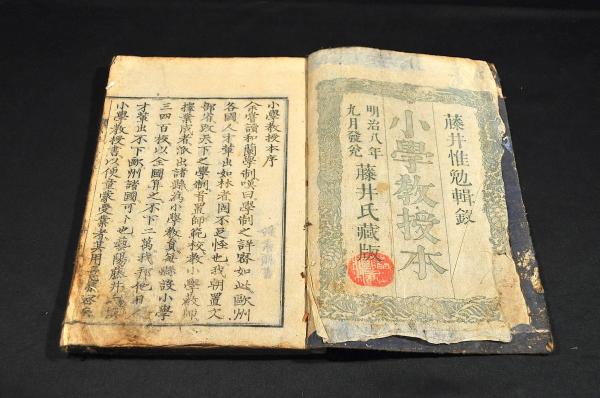 藤井惟勉輯敘
小學教授本
明治八年
九月發兌
藤井氏藏版
小學教授本序
余嘗讀和蘭學制嘆曰學制之詳密如此歐洲
各國人才輩出如林者固不足怪也我朝置文
部省改天下之學制首置師範校教小學教師
擇業成者派出諸縣為小學教員每縣設小學
三四百校以全國算之不下二萬我邦他日人
才輩出不下歐洲諸國可卜也藝陽藤井
小學教授書以便童蒙受業者其用意